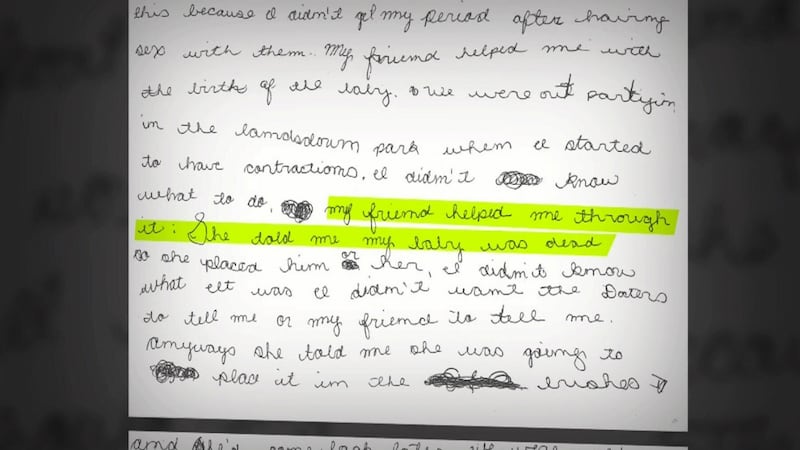 this because I didn't get my period after having
sex with them. My friend helped me with
the birth of the baby. we were out partyin
in the lamdsdowm park when I started
to have contractions. I didn't know
what to do. my friend helped me through
it: She told me my baby was dead
so she placed him or her, I didn't know
what it was I didn't want the Doters
to tell me or my friend to tell me.
Amyways she told me she was going to
plac it in the bushes
and come back later